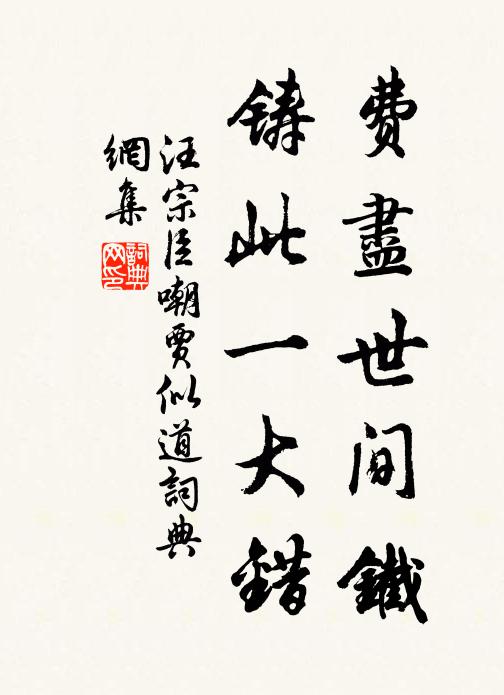 費盡世間鐵
鑄此一大錯
汪宗臣嘲賈似道詞典
網集
詞典网印